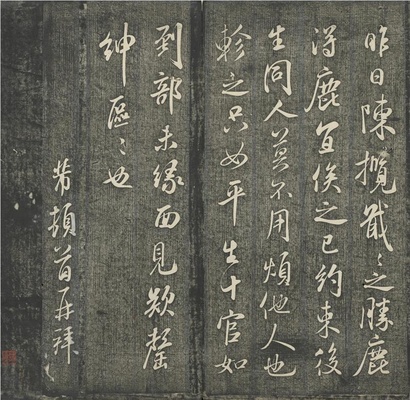 昨日陳攬戢戢之勝鹿
得鹿宜俟之已約束後
生同人莫不用煩他人也
軫之只如平生十官如
到部未緣面見欵罄
紳區區也
芾頓首再拜